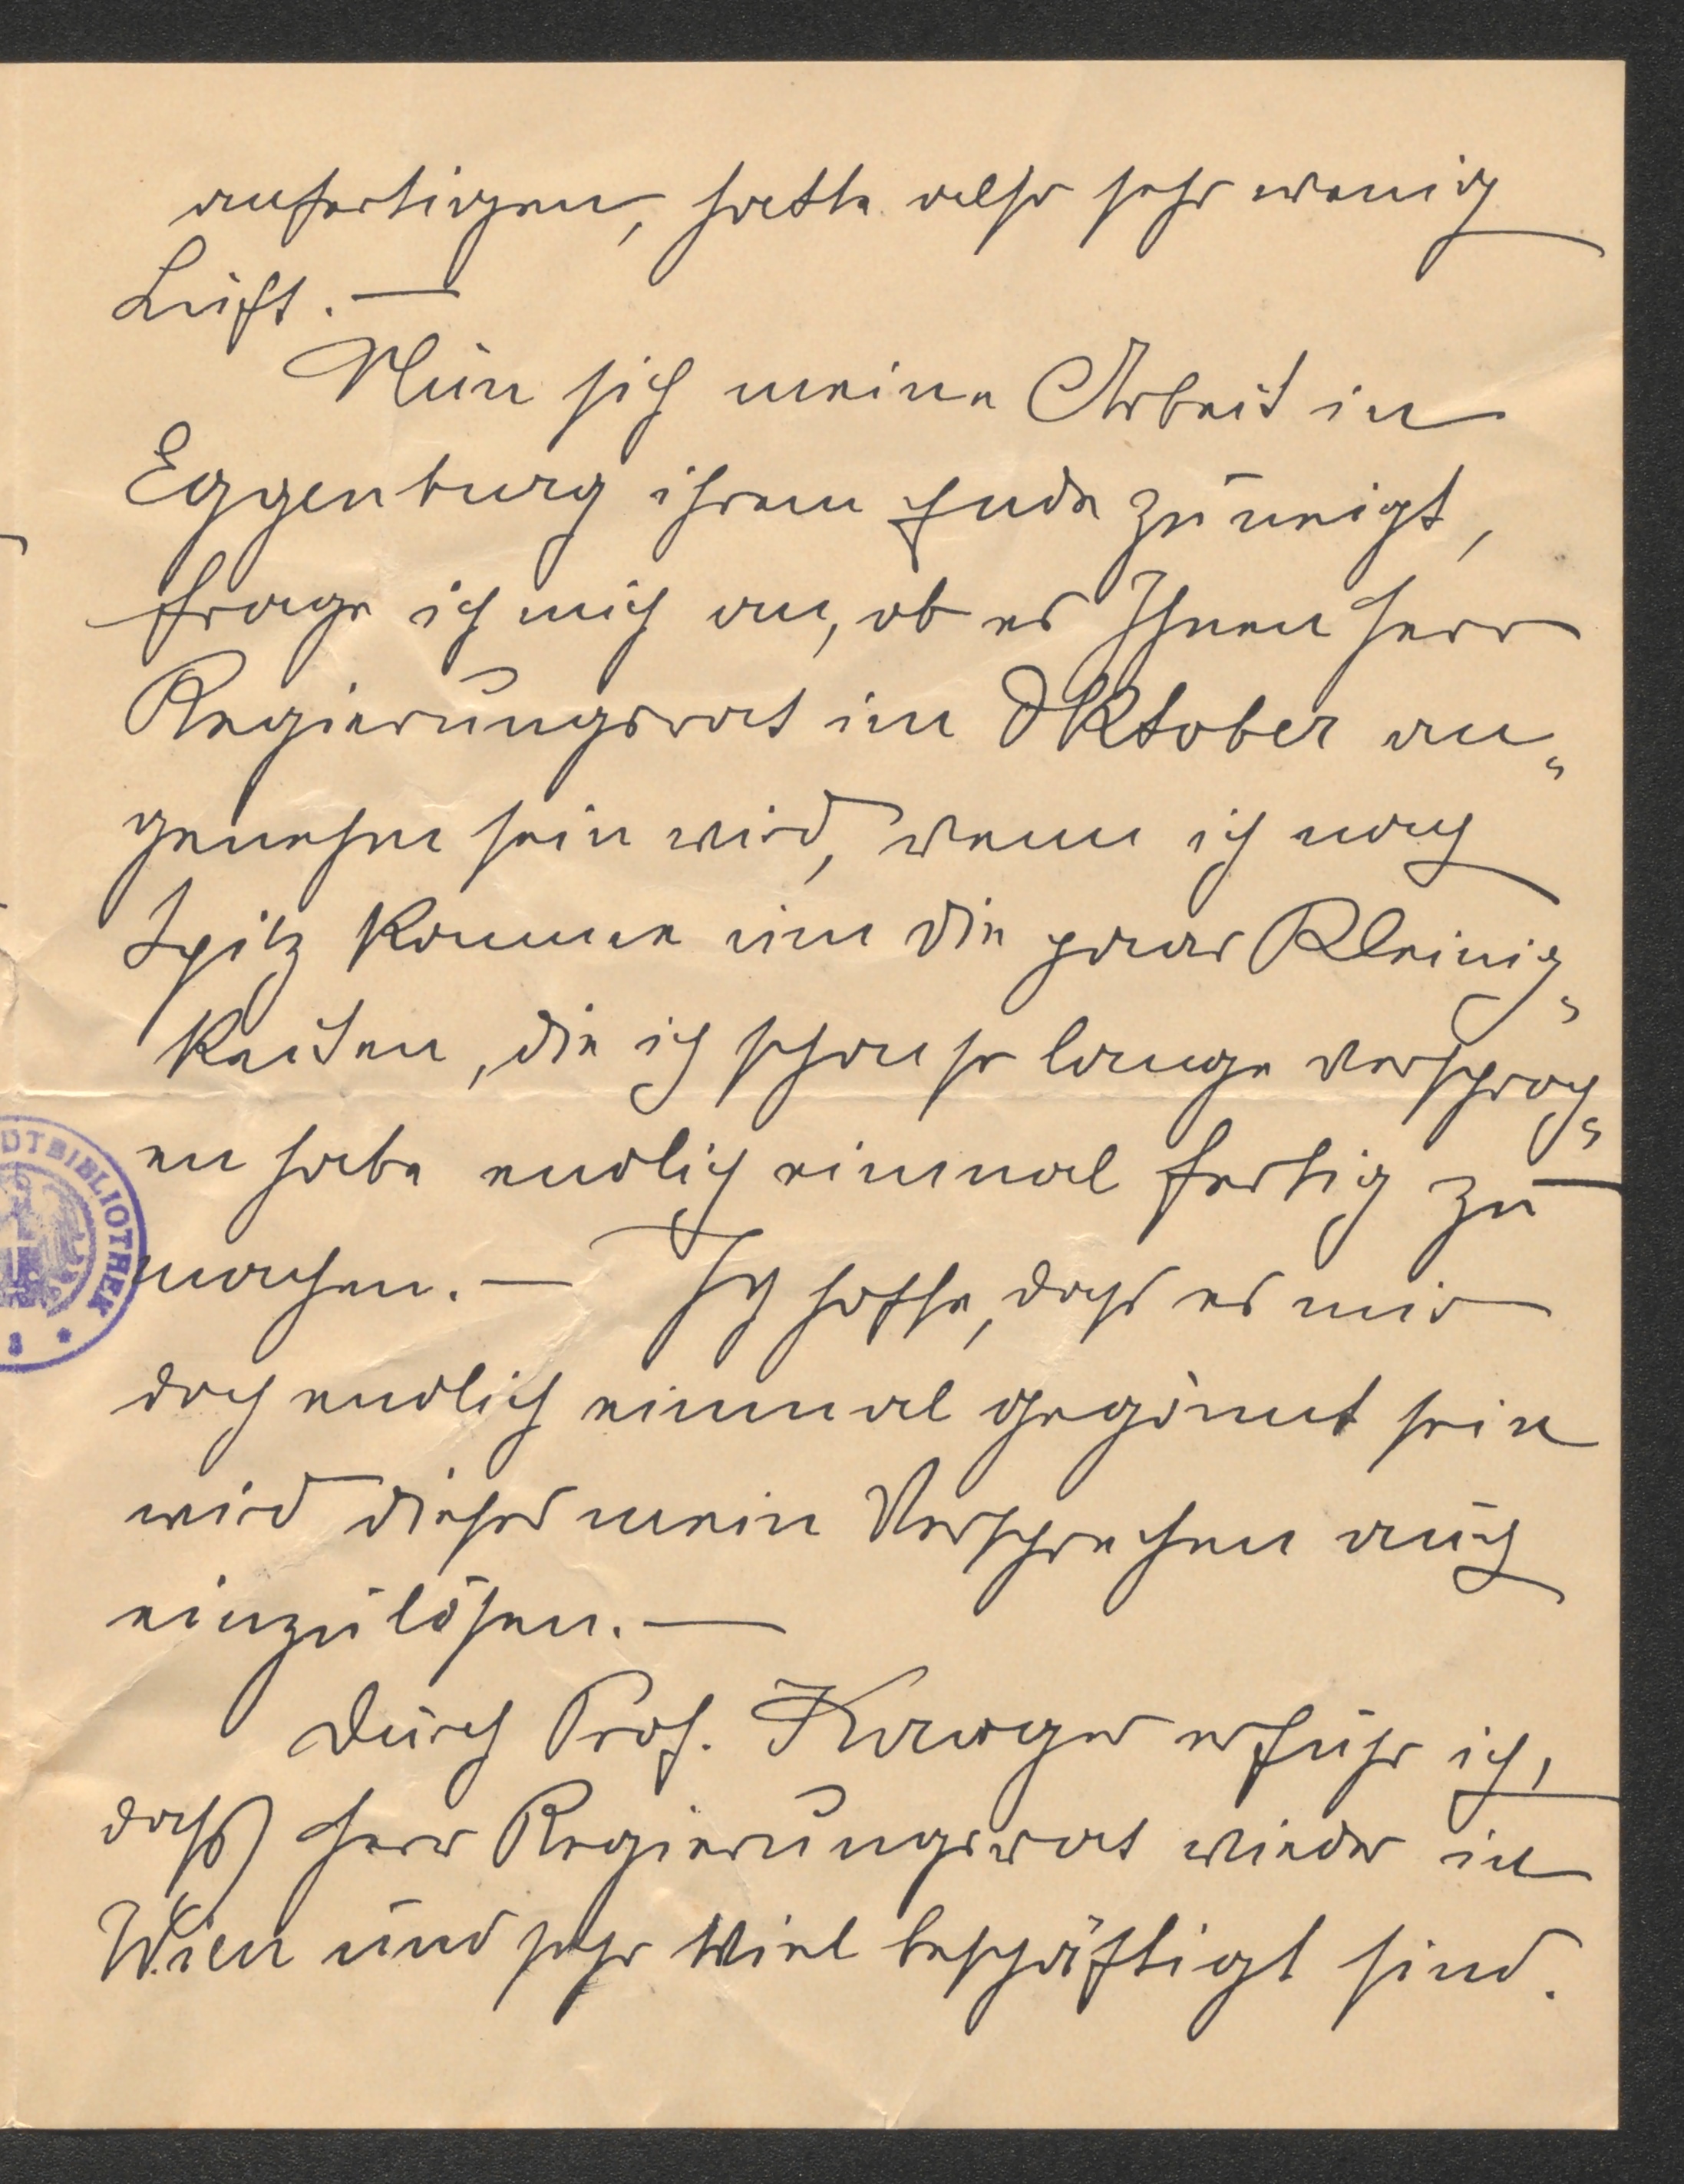 anfertigen, hatte also sehr wenig
Luft. —
Nun sich meine Arbeit in
Eggenburg ihrem Ende zuneigt,
frage ich mich an, ob es Ihnen Herr
Regierungsrat im Oktober an„
genehm sein wird, wenn ich nach
Spitz komme um die paar Kleinig„
keiten, die ich schon so lange versproch„
en habe endlich einmal fertig zu
machen. — Ich hoffe, dass es mir
doch endlich einmal gegönnt sein
wird dieses mein Versprechen auch
einzulösen. —
Durch Prof. erfuhr ich,
daß Herr Regierungsrat wieder in
Wien und sehr viel beschäftigt sind.
DTBIBLIOTHEK